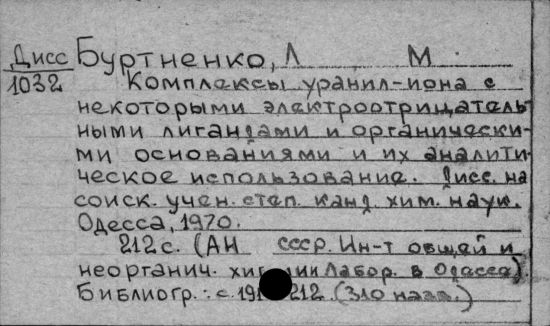 Дисс
1032
Буртненко, Л М
Комплексы уранил-иона с
некоторыми электроотрицатель-
ными лигандами и органически-
ми основаниями и их аналити-
ческое использование. Дисс. на
соиск. учен. степ. канд. хим. наук.
Одесса, 1970.
212 с. (АН СССР. Ин-т общей и
неорганич. хи ии Лабор. в Одессе).
Библиогр.: с. 191 212 (310 назв.)